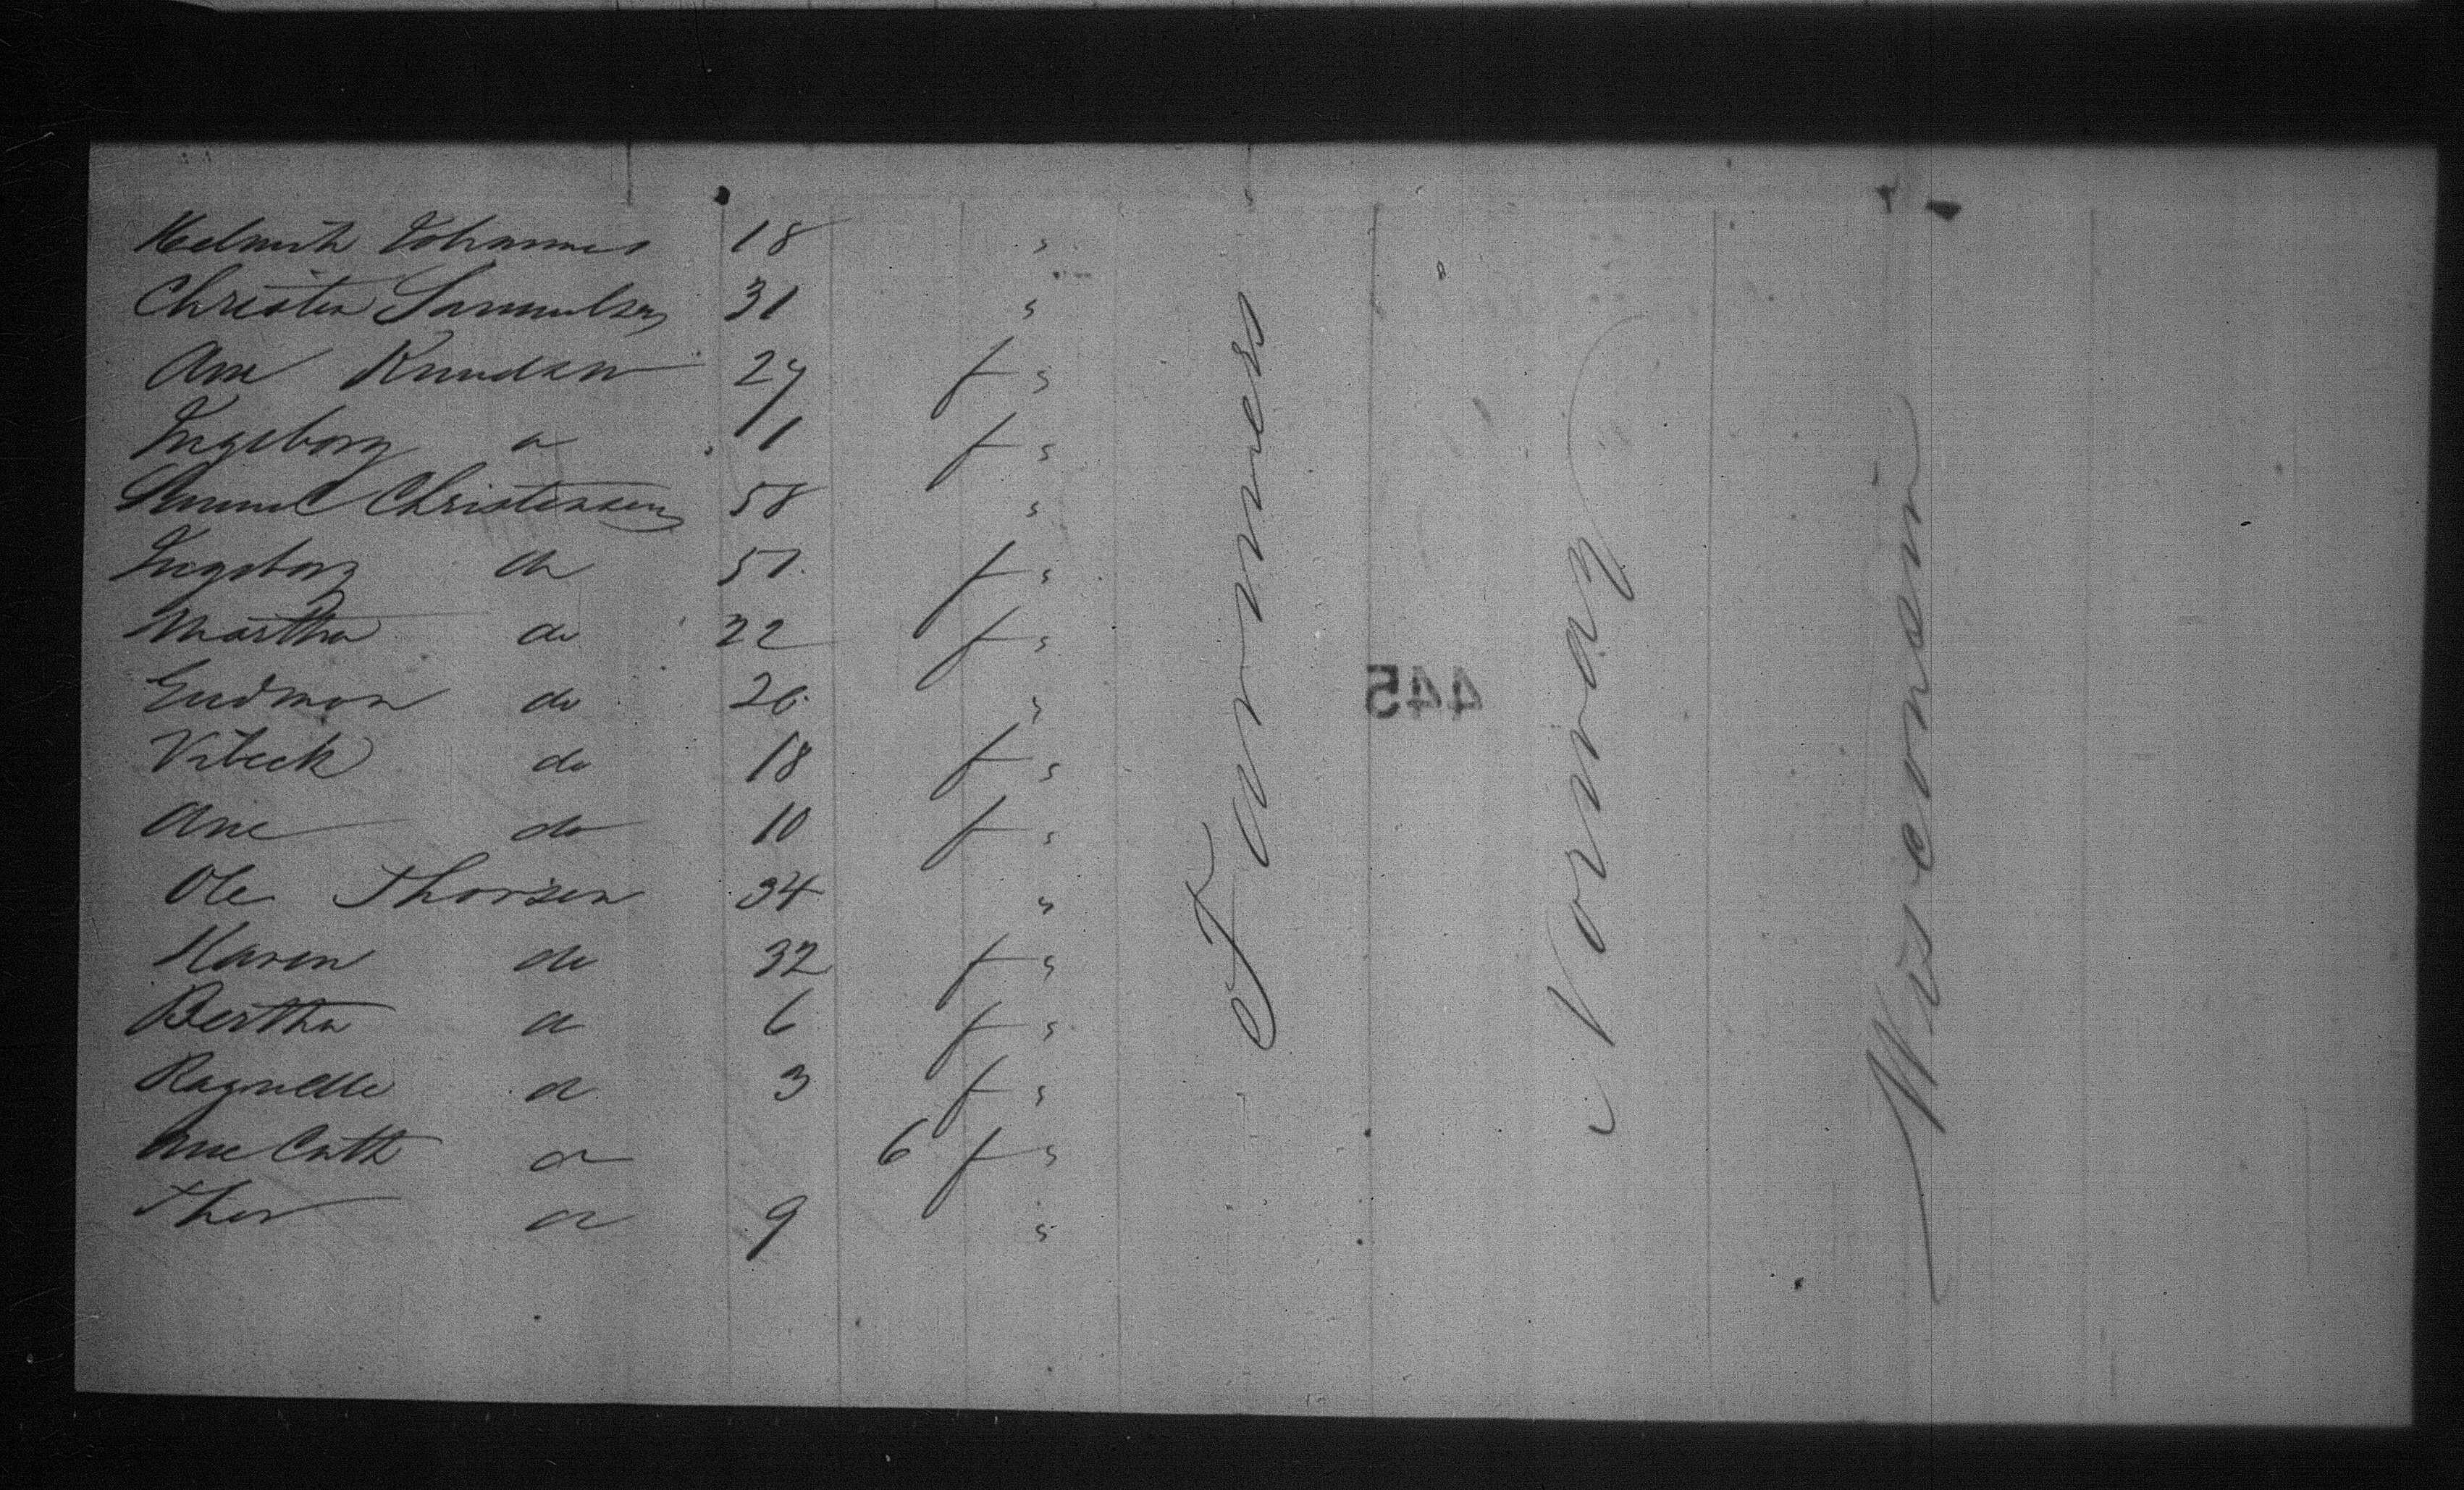 Helmith Johannes 18 "
Christen Samuelsen 31 "
Ane Knudsen 27 f "
Ingeborg do 1 f "
Samuel Christensen 58 "
Ingeborg do 51 f "
Martha do 22 f "
Gudmon do 20 "
Vibeck do 18 f "
Ane do 10 f "
Ole Thorsen 34 "
Karen do 32 f "
Bertha do 6 f "
Ragnelle do 3 f "
Ane Cath do 6 f "
Thor do 9 "
Farmers
Norway
Wisconsin
445